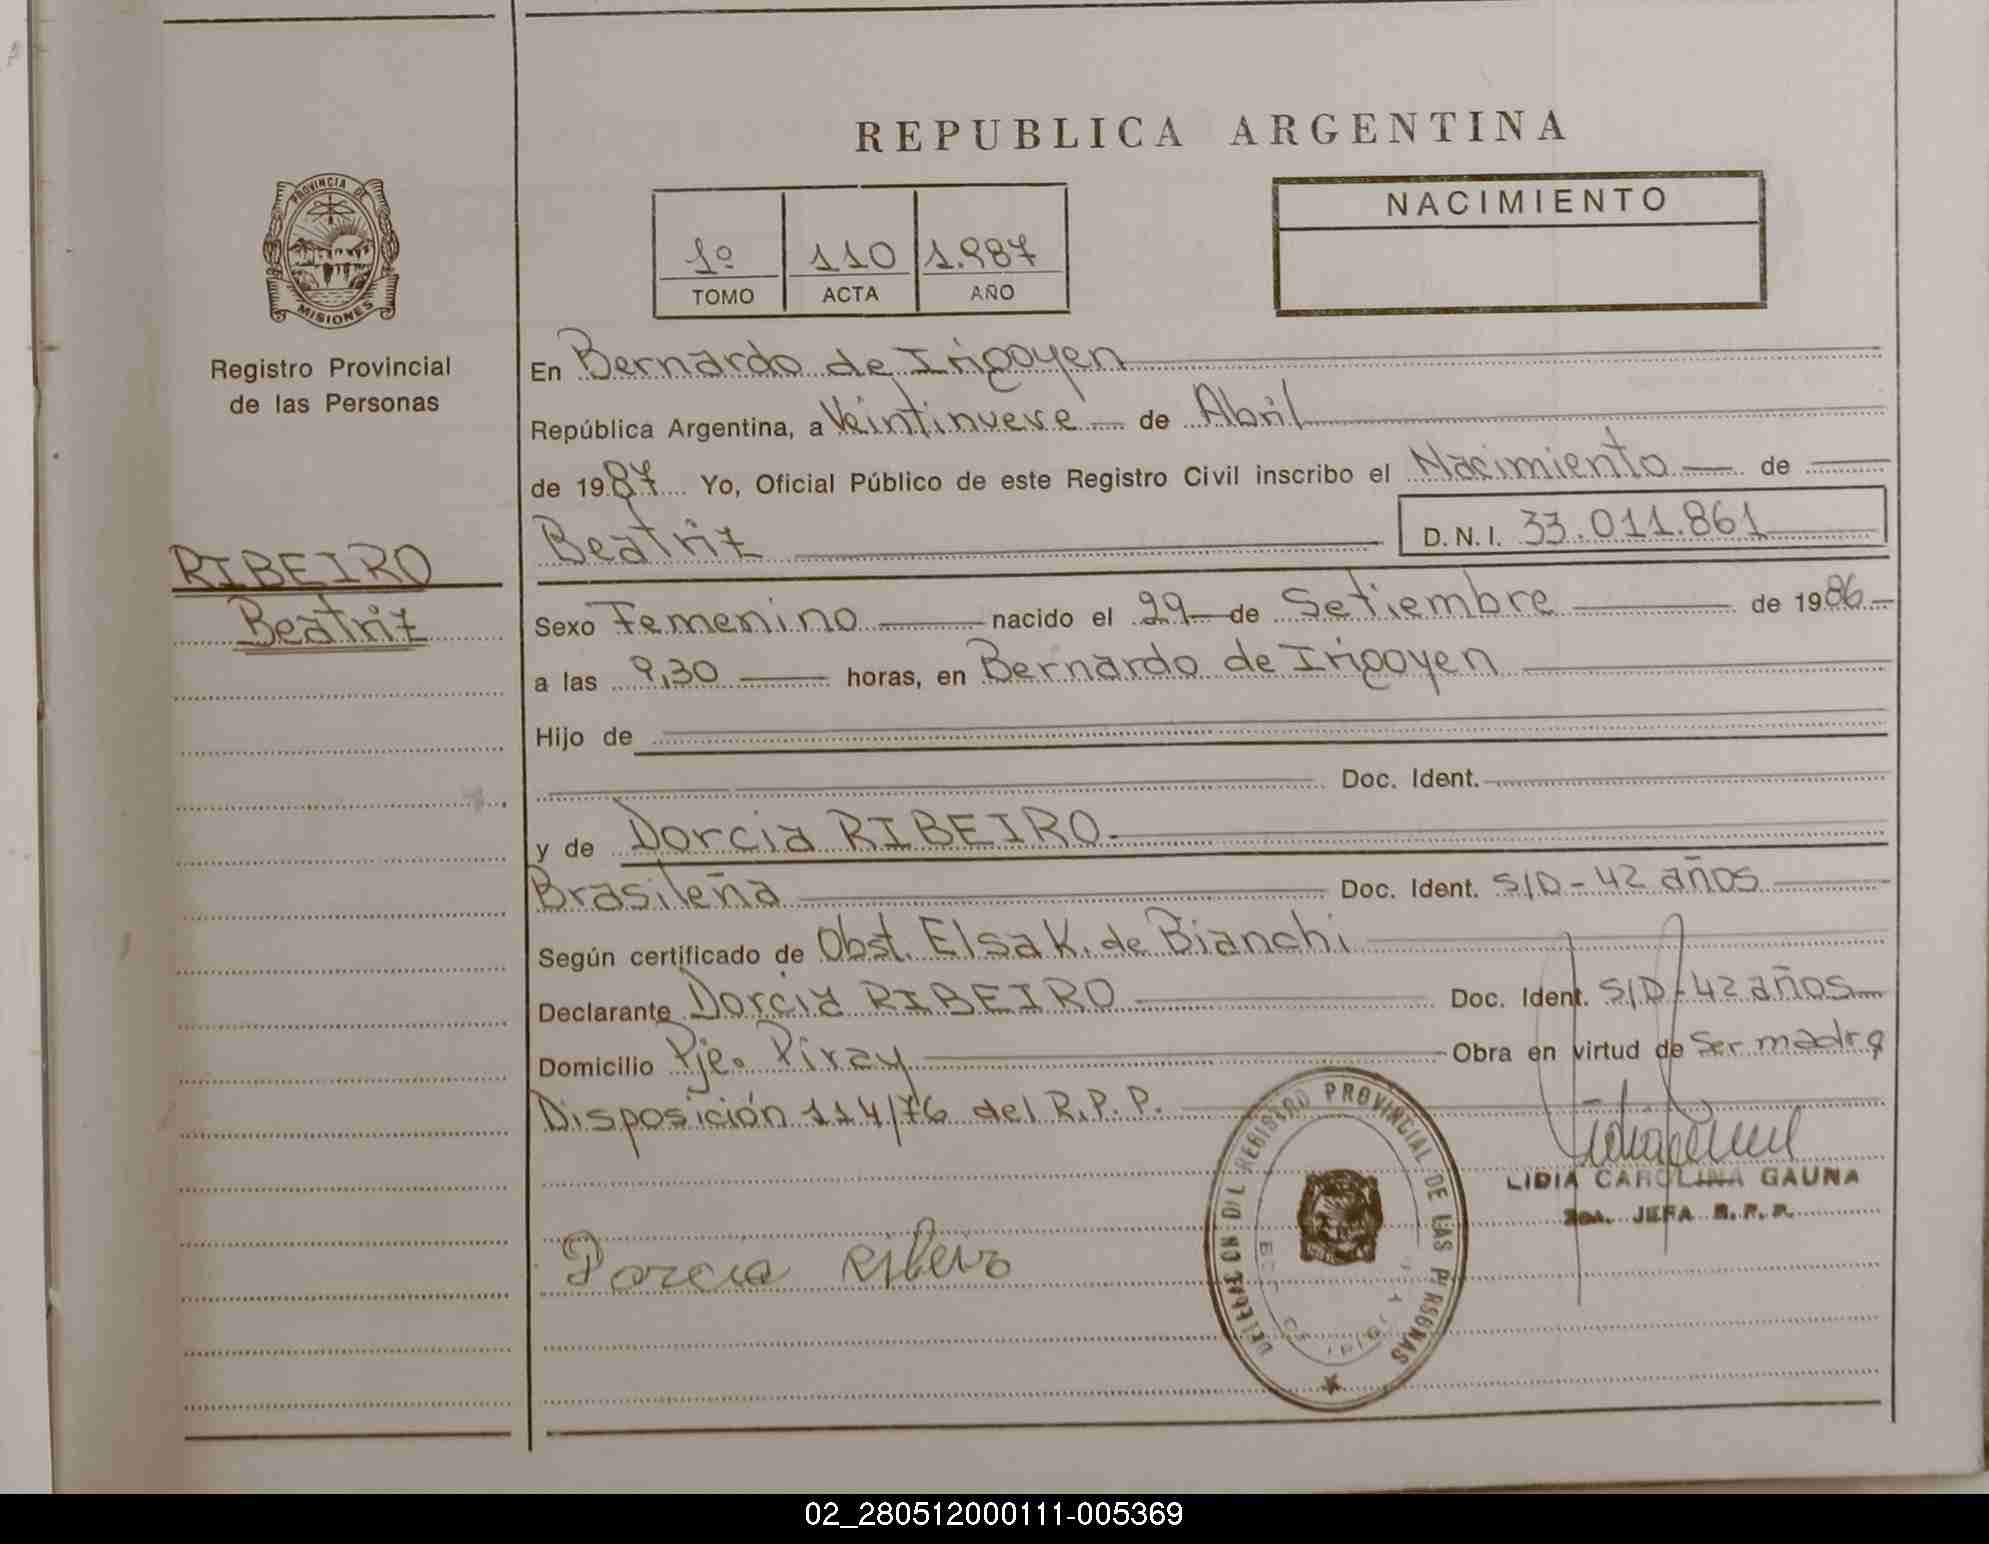 REPUBLICA ARGENTINA
PROVINCIA DE
MISIONES
Registro Provincial
de las Personas
1º 110 1.987
TOMO ACTA AÑO
NACIMIENTO
En Bernardo de Irigoyen
República Argentina, a Veintinueve de Abril
de 1987 Yo, Oficial Público de este Registro Civil inscribo el Nacimiento de
Beatriz D.N.I. 33.011.861
RIBEIRO
Beatriz
Sexo Femenino nacido el 29 de Setiembre de 1986
a las 9,30 horas, en Bernardo de Irigoyen
Hijo de
Doc. Ident.
y de Dorcia RIBEIRO.
Brasileña Doc. Ident. S/D - 42 años
Según certificado de Obst. Elsa K. de Bianchi
Declarante Dorcia RIBEIRO Doc. Ident. S/D - 42 años
Domicilio Pje. Piray Obra en virtud de Ser madre
Disposición 114/76 del R.P.P.
LIDIA CAROLINA GAUNA
2da. JEFA R.P.P.
DELEGACION DEL REGISTRO PROVINCIAL DE LAS PERSONAS
Dorcia Ribeiro
02_280512000111-005369